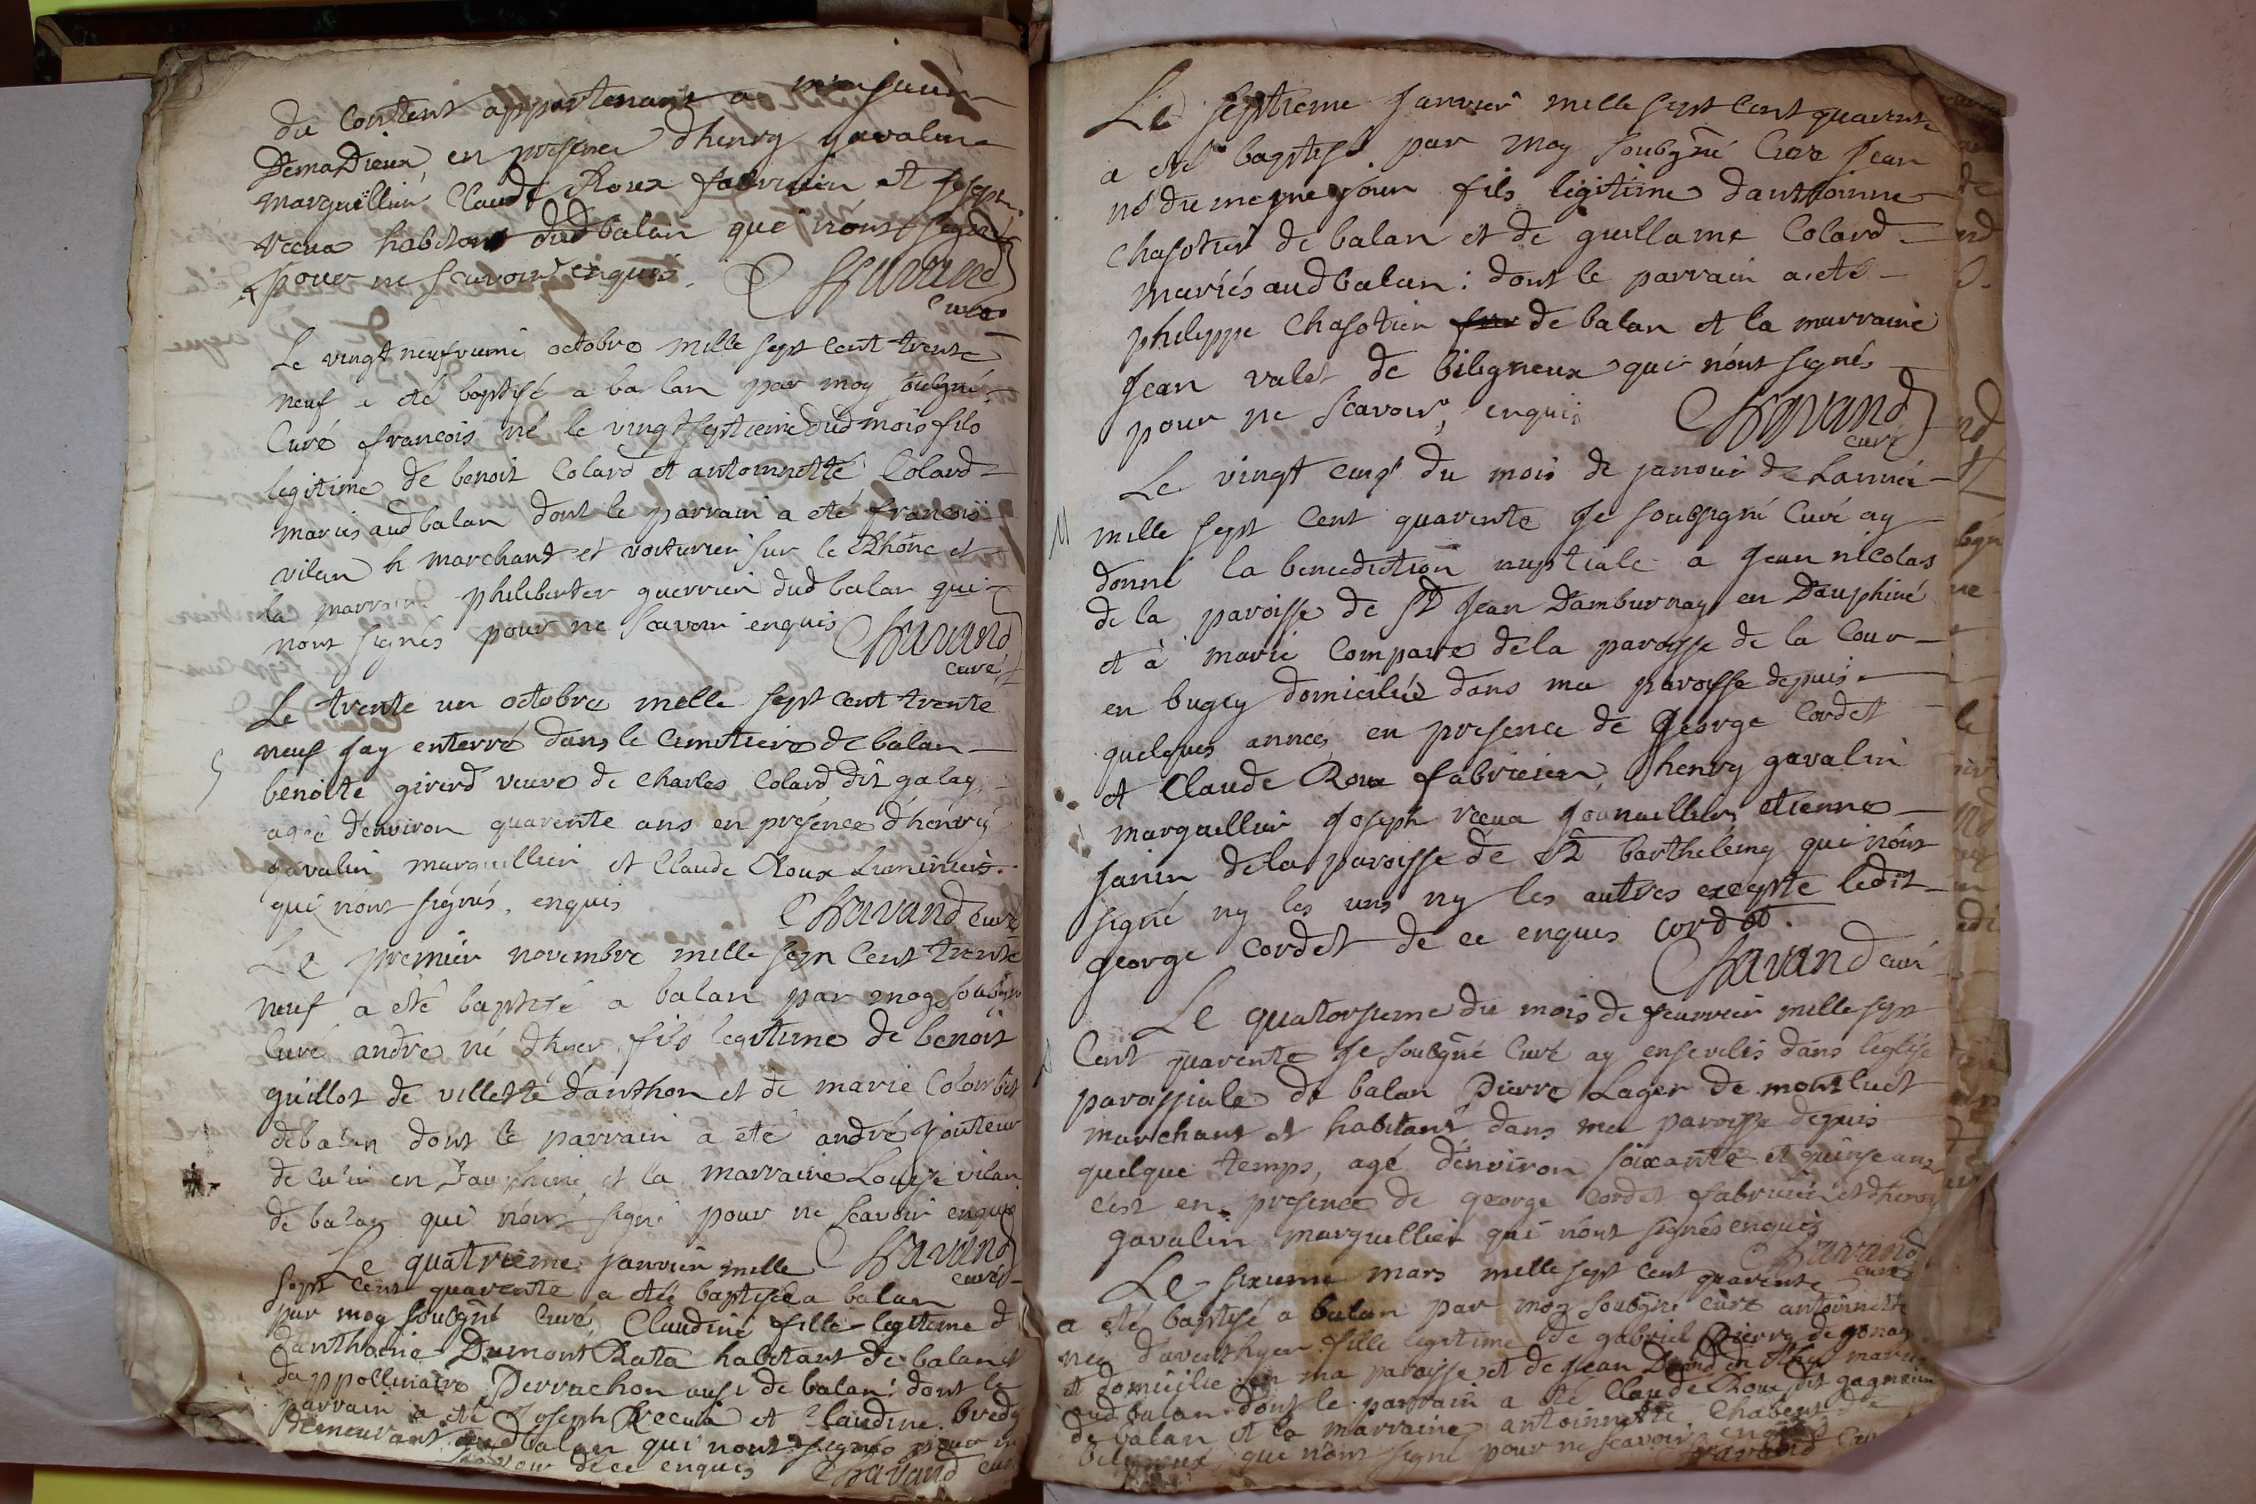 du content appartenant a monsieur
Demadieux, en presence d'henry gavalin
marguillier Claude Roux fabricien et joseph
recua habitans dud balan qui n'ont signés
pour ne scavoir enquis. Chavand
curé
Le vingt neufvieme octobre mille sept cent trente
neuf a été baptisé a balan par moy soubgné
Curé francois né le vingt septieme dud mois fils
legitime de benoit Colard et antoinnette Colard
mariés aud balan dont le parrain a eté francois
vilan h marchand et voiturier sur le Rhône et
la marraine philiberter guerrier dud balan qui
n'ont signés pour ne scavoir enquis Chavand
curé
Le trente un octobre mille sept cent trente
neuf j'ay enterré dans le cimetiere de balan
benoite girerd veuve de Charles Colard dit galay
agée d'environ quarente ans en présence d'henry
gavalin marguillier et Claude Roux Luminier
qui n'ont signés, enquis Chavand curé
Le premier novembre mille sept cent trente
neuf a eté baptisé a balan par moy soubgné
Curé andré né d'hyer fils legitime de benoit
guillot de villette d'anthon et de marie Colombet
de balan dont le parrain a eté andré jouteur
de en Dauphiné et la marraine Louise vilan
de balan qui n'ont signé pour ne scavoir enquis
Chavand
curé
Le quatrieme janvier mille
sept cent quarente a eté baptisée a balan
par moy soubgné curé, Claudine fille legitime d
d'anthoine Dumont Rata habitant de balan et
d'appollinaire Perrachon aussi de balan: dont le
parrain a eté Joseph Recua et Claudine
demeurant aud balan qui n'ont signés pour ne
scavoir de ce enquis Chavand curé
Le septieme janvier mille sept cent quarente
a eté baptisé par moy soubgné Curé Jean
né du mesme jour fils legitime d'anthoinne
Chasotier de balan et de guillame Colard
mariés aud balan: dont le parrain a eté
philippe Chasotier de balan et la marraine
Jean valet de biligneux qui n'ont signés
pour ne scavoir, enquis Chavand
curé
Le vingt cinq du mois de janvier de L'année
M mille sept cent quarente je soubsigné Curé ay
donné la benediction nuptiale a Jean nicolas
de la paroisse de St Jean Damburnay en Dauphiné
et à marie Compare de la paroisse de la Cour
en bugey domiciliée dans ma paroisse depuis
quelques années en presence de George Cordet
et Claude Roux fabricien, henry gavalin
marguillier Joseph recua Journaillier, etienne
janin de la paroisse de St barthelemy qui n'ont
signé ny les uns ny les autres excepte ledit
George Cordet de ce enquis Cordet.
Chavand curé
Le quatorsieme du mois de feuvrier mille sept
Cent quarente je soubgné Curé ay ensevelis dans l'eglise
paroissiale de balan Pierre Lager de montluet
marchant et habitant dans ma paroisse depuis
quelque temps, agé d'environ soixante et quinse ans
c'est en presence de george Cordet fabricien et d'henry
gavalin marguillier qui n'ont signés enquis
Chavand
curé
Le sixieme mars mille sept cent quarente
a eté baptisé a balan par moy soubgné curé antoinnette
née d'avent hyer fille legitime de gabriel Pierre de
et domicilie en ma paroisse et de jean mariés
aud balan dont le parrain a eté Claude Roux dit gagneux
de balan et la marraine antoinnette Chabert de
biligneux qui n'ont signé pour ne scavoir enquis
Chavand curé